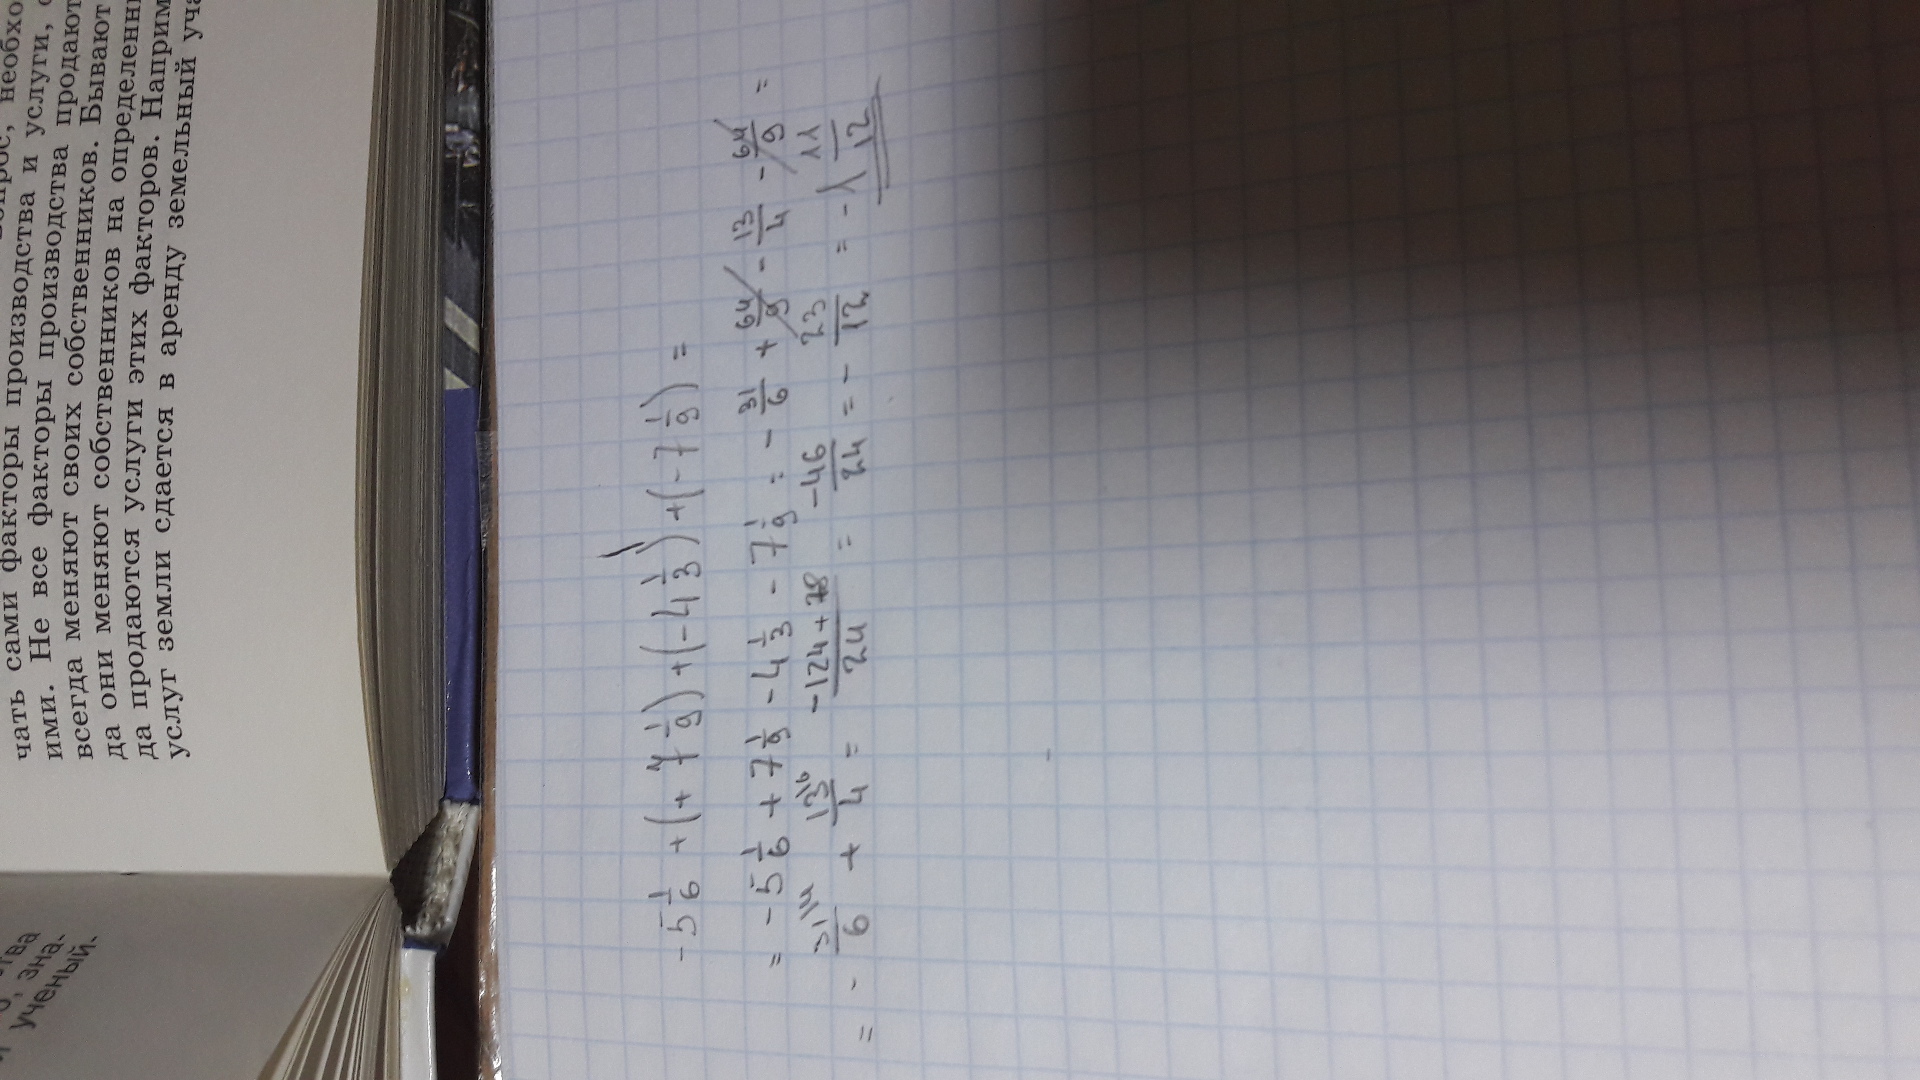 чать сами факторы производства и услуги,
ими. Не все факторы производства продают
всегда меняют своих собственников. Бывают
да они меняют собственников на определенн
да продаются услуги этих факторов. Наприм
услуг земли сдается в аренду земельный уча
зна-
ученый.
-5 1/6 + (+ 7 1/9) + (- 4 1/3) + (- 7 1/9) =
= -5 1/6 + 7 1/9 - 4 1/3 - 7 1/9 = - 31/6 + 64/9 - 13/4 - 64/9 =
= - 31/6 + 13/4 = -124+78/24 = -46/24 = - 23/12 = -1 11/12